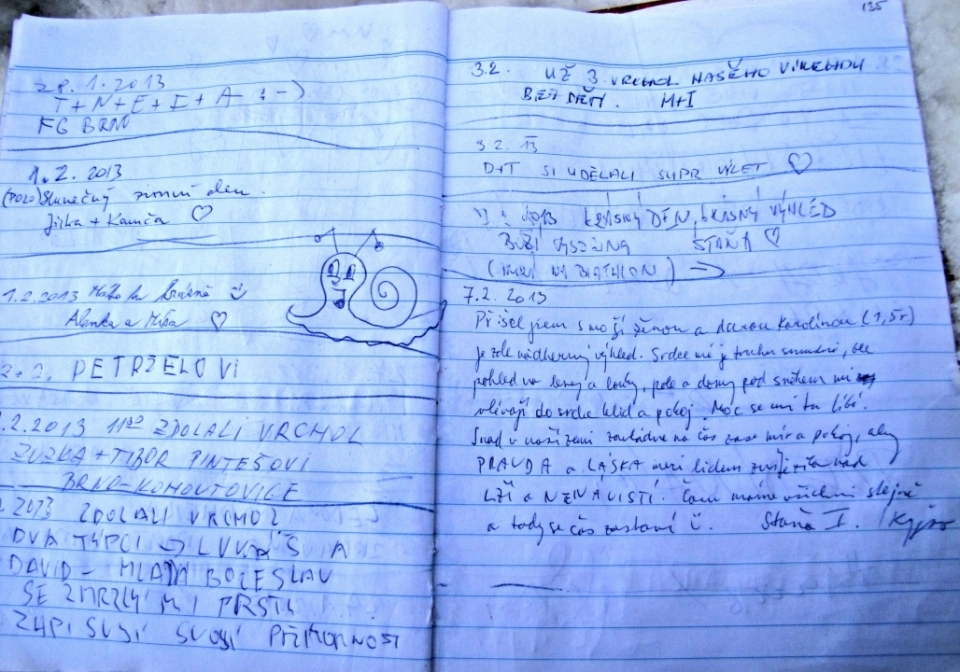 1.2013
T + N + E + I + A :-)
FG BRNO
1.2. 2013
(POLO) Slunečný zimní den.
Jitka + Kamča ♡
1.2.2013 krásně
Alenka a Míša ♡
PETRŽELOVI
.2.2013 11³⁰ ZDOLALI VRCHOL
ZUZKA + TIBOR PINTEŠOVI
BRNO-KOHOUTOVICE
2013 ZDOLALI VRCHOL
DVA TÝPCI → A
DAVID - MLADÁ BOLESLAV
SE ZMRZLÝMI PRSTY
ZAPISUJÍ SVOJÍ PŘÍTOMNOST
135
3.2. UŽ 3. VRCHOL NAŠEHO VÍKENDU
BEZ DĚTÍ. M+I
3.2. 13
D+T SI UDĚLALI SUPR VÝLET ♡
2013 KRÁSNÝ DEN, KRÁSNÝ VÝHLED
BOŽÍ STÁŇA ♡
( NA BIATHLON) →
7.2. 2013
Přišel jsem s mojí ženou a dcerou Karolínou (1,5r)
je zde nádherný výhled. Srdce mé je trochu smutné, ale
pohled na lesy a louky, pole a domy pod sněhem mi
vlévají do srdce klid a pokoj. Moc se mi tu líbí.
Snad v naší zemi zavládne na čas zase mír a pokoj, aby
PRAVDA a LÁSKA mezi lidem zvítězila nad
LŽÍ a NENÁVISTÍ. Času máme všichni stejně
a tady se čas zastaví Stáňa I.